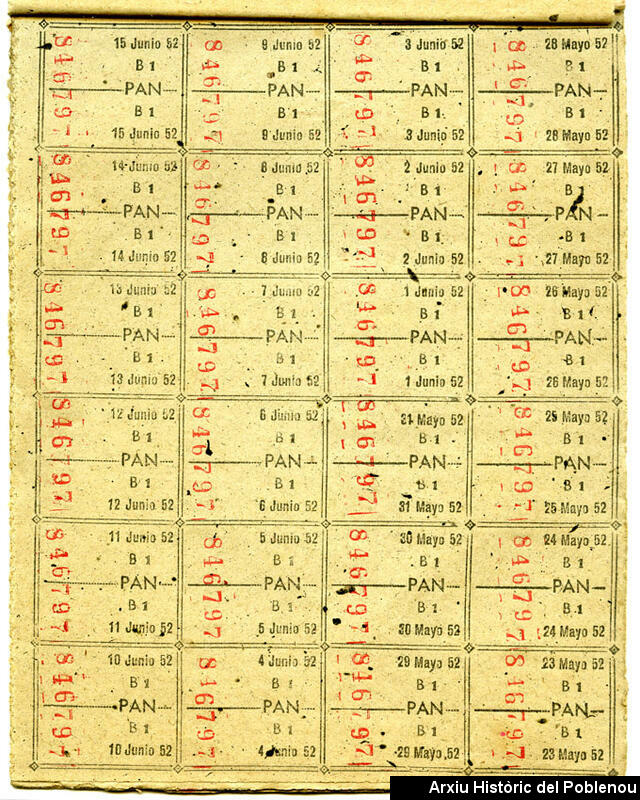 846797
15 Junio 52
B 1
PAN
B 1
15 Junio 52
846797
9 Junio 52
B 1
PAN
B 1
9 Junio 52
846797
3 Junio 52
B 1
PAN
B 1
3 Junio 52
846797
28 Mayo 52
B 1
PAN
B 1
28 Mayo 52
846797
14 Junio 52
B 1
PAN
B 1
14 Junio 52
846797
8 Junio 52
B 1
PAN
B 1
8 Junio 52
846797
2 Junio 52
B 1
PAN
B 1
2 Junio 52
846797
27 Mayo 52
B 1
PAN
B 1
27 Mayo 52
846797
13 Junio 52
B 1
PAN
B 1
13 Junio 52
846797
7 Junio 52
B 1
PAN
B 1
7 Junio 52
846797
1 Junio 52
B 1
PAN
B 1
1 Junio 52
846797
26 Mayo 52
B 1
PAN
B 1
26 Mayo 52
846797
12 Junio 52
B 1
PAN
B 1
12 Junio 52
846797
6 Junio 52
B 1
PAN
B 1
6 Junio 52
846797
31 Mayo 52
B 1
PAN
B 1
31 Mayo 52
846797
25 Mayo 52
B 1
PAN
B 1
25 Mayo 52
846797
11 Junio 52
B 1
PAN
B 1
11 Junio 52
846797
5 Junio 52
B 1
PAN
B 1
5 Junio 52
846797
30 Mayo 52
B 1
PAN
B 1
30 Mayo 52
846797
24 Mayo 52
B 1
PAN
B 1
24 Mayo 52
846797
10 Junio 52
B 1
PAN
B 1
10 Junio 52
846797
4 Junio 52
B 1
PAN
B 1
4 Junio 52
846797
29 Mayo 52
B 1
PAN
B 1
29 Mayo 52
846797
23 Mayo 52
B 1
PAN
B 1
23 Mayo 52
Arxiu Històric del Poblenou